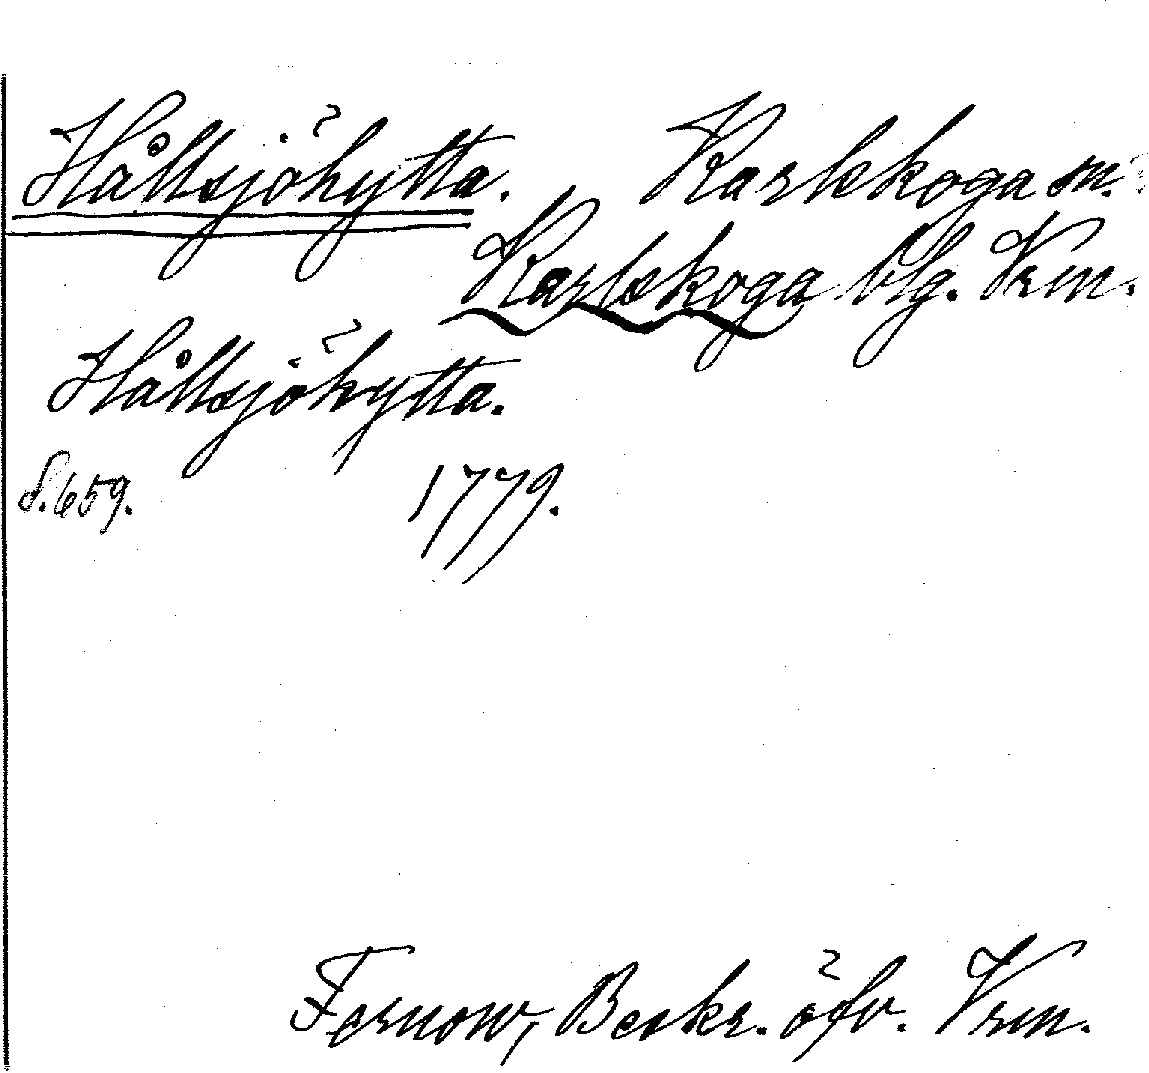 Hållsjöhytta. Karlskoga sn.
Karlskoga blg. Vrm.
Hållsjöhytta.
S. 659. 1779.
Fernow, Beskr. öfv. Vrm.